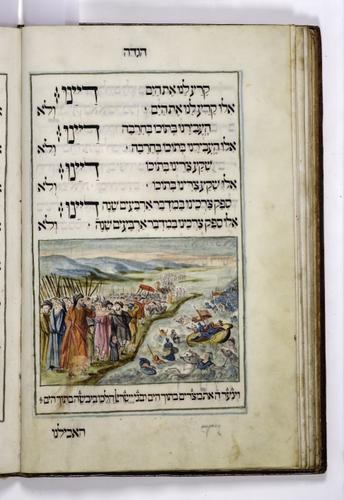 הגדה
קרע לנו את הים דיינו׃
אלו קרע לנו את הים ׳ ולא
העבירנו בתוכו בחרבה דיינו׃
אלו העבירנו בתוכו בחרבה ׳ ולא
שקע צרינו בתוכו דיינו׃
אלו שקע צרינו בתוכו ׳ ולא
ספק צרכינו במדבר ארבעים שנה דיינו׃
אלו ספק צרכינו במדבר ארבעים שנה ׳ ולא
וינער ה את מצרים בתוך הים ובני ישראל הלכו ביבשה בתוך הים
האכילנו